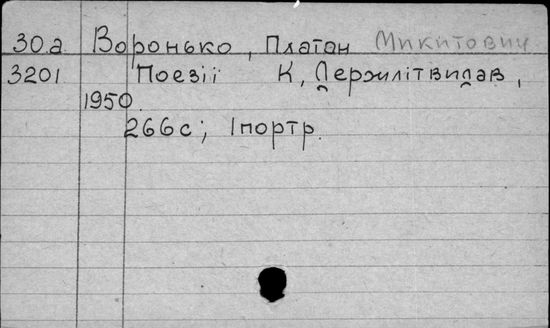 30.а Воронько, Платан Микитович
3201 Поезії К, Держлітвидав,
1950.
266с; 1портр.